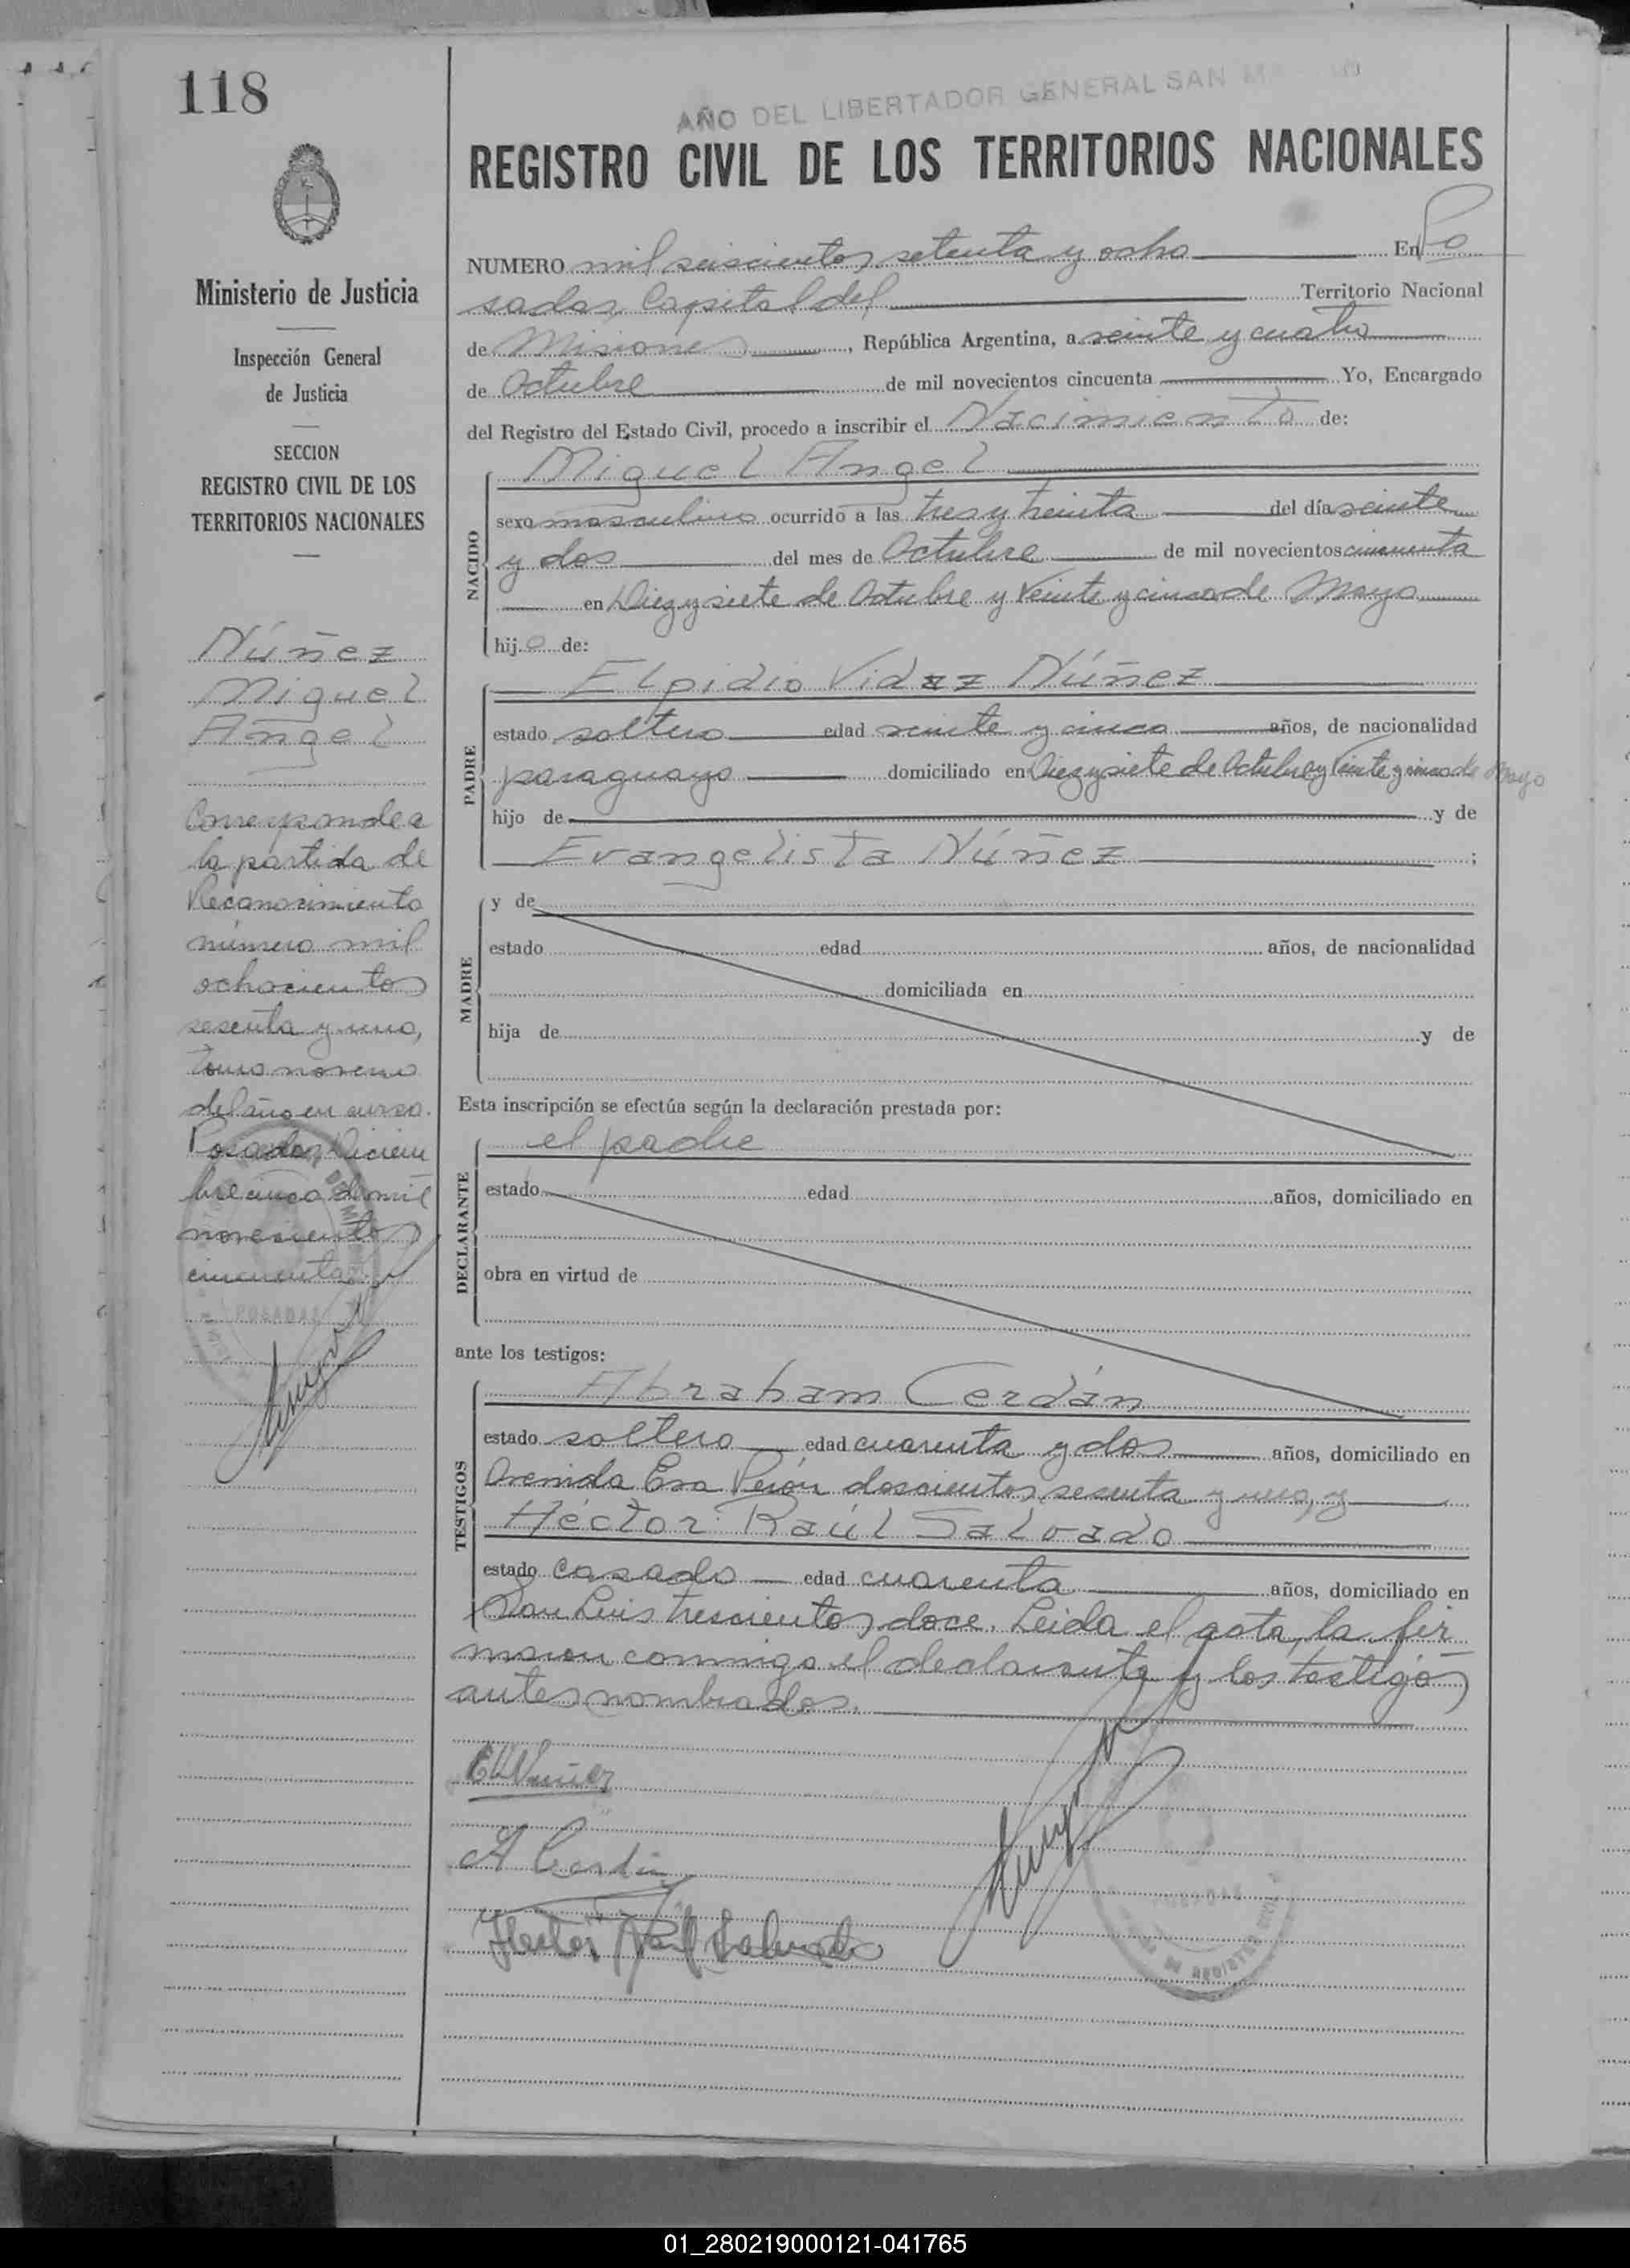 118
AÑO DEL LIBERTADOR GENERAL SAN
REGISTRO CIVIL DE LOS TERRITORIOS NACIONALES
Ministerio de Justicia
Inspección General
de Justicia
SECCION
REGISTRO CIVIL DE LOS
TERRITORIOS NACIONALES
Núñez
Miguel
Angel
Corresponde a
la partida de
Reconocimiento
número mil
ochocientos
sesenta y uno,
tomo noveno
del año en curso.
Posadas, Diciem
bre cinco de mil
novecientos
cincuenta.
POSADAS
NUMERO mil seiscientos setenta y ocho En Po
sadas, Capital del Territorio Nacional
de Misiones, República Argentina, a veinte y cuatro
de Octubre de mil novecientos cincuenta Yo, Encargado
del Registro del Estado Civil, procedo a inscribir el Nacimiento de:
NACIDO
Miguel Angel
sexo masculino ocurrido a las tres y treinta del día veinte
y dos del mes de Octubre de mil novecientos cincuenta
en Diez y siete de Octubre y Veinte y cinco de Mayo
hijo de:
PADRE
Elpidio Vidaz Núñez
estado soltero edad veinte y cinco años, de nacionalidad
paraguayo domiciliado en Diez y siete de Octubre y Veinte y cinco de Mayo
hijo de y de
Evangelista Núñez ;
MADRE
y de
estado edad años, de nacionalidad
domiciliada en
hija de y de
Esta inscripción se efectúa según la declaración prestada por:
DECLARANTE
el padre
estado edad años, domiciliado en
obra en virtud de
ante los testigos:
TESTIGOS
Abraham Cerdán
estado soltero edad cuarenta y dos años, domiciliado en
Avenida Eva Perón doscientos sesenta y uno, y
Héctor Raúl Salvado
estado casado edad cuarenta años, domiciliado en
San Luis trescientos doce. Leida el acta, la fir
maron conmigo el declarante y los testigos
antes nombrados.
EVNuñez
A Cerdán
Hector Raúl Salvado
01_280219000121-041765